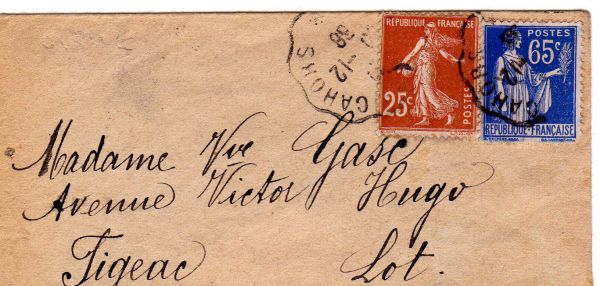 CAHORS
-12
38
REPUBLIQUE FRANÇAISE
25c
POSTES
POSTES
65c
REPUBLIQUE-FRANÇAISE
CAHORS
-12
38
Madame Vve Gasc
Avenue Victor Hugo
Figeac Lot.